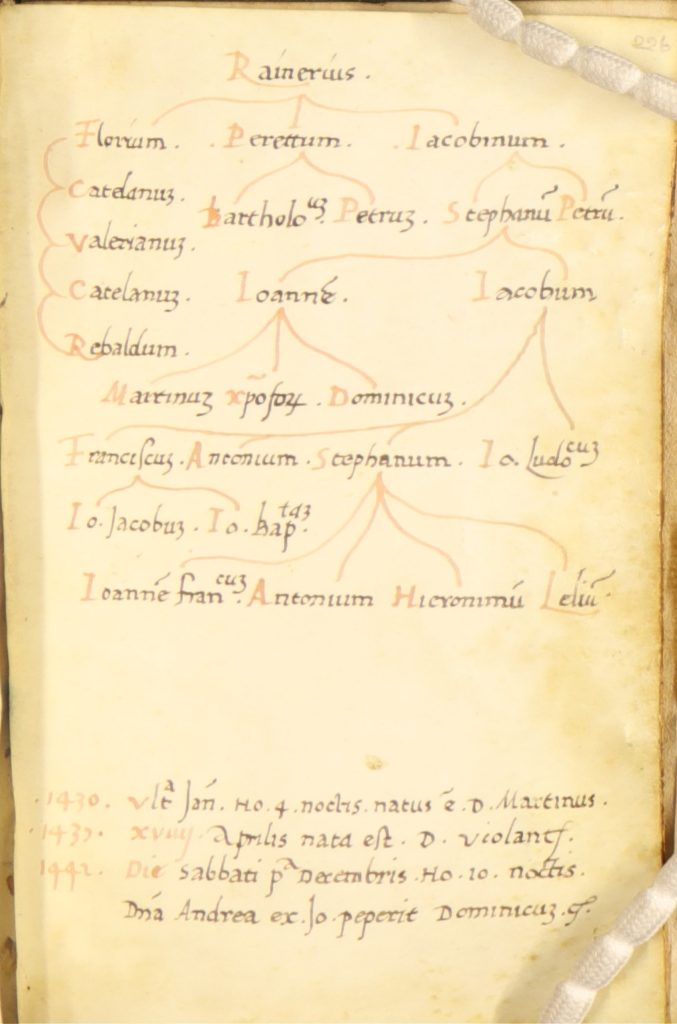 226
Rainerius.
Florium. Perettum. Iacobinum.
Catelanuꝫ.
Bartholoᵘꝫ Petruꝫ. Stephanū Petrū.
Valerianuꝫ.
Catelanuꝫ. Ioannē. Iacobum
Rebaldum.
Martinuꝫ xp̄oforꝝ. Dominicuꝫ.
Franciscuꝫ. Antonium. Stephanum. Io. Ludoᶜᵘꝫ
Io. Jacobuꝫ. Io. bapᵗᵃꝫ.
Ioannē franᶜᵘꝫ. Antonium Hieronimū Leliū.
.1430. Vltᵃ Jan̄. Ho. 4. noctis. natus ē. D. Martinus.
xviiij Aprilis nata est. D. Violant
1442. Die Sabbati pᵃ Decembris. Ho. 10. noctis.
Dnā Andrea ex. Jo. peperit Dominicuꝫ.